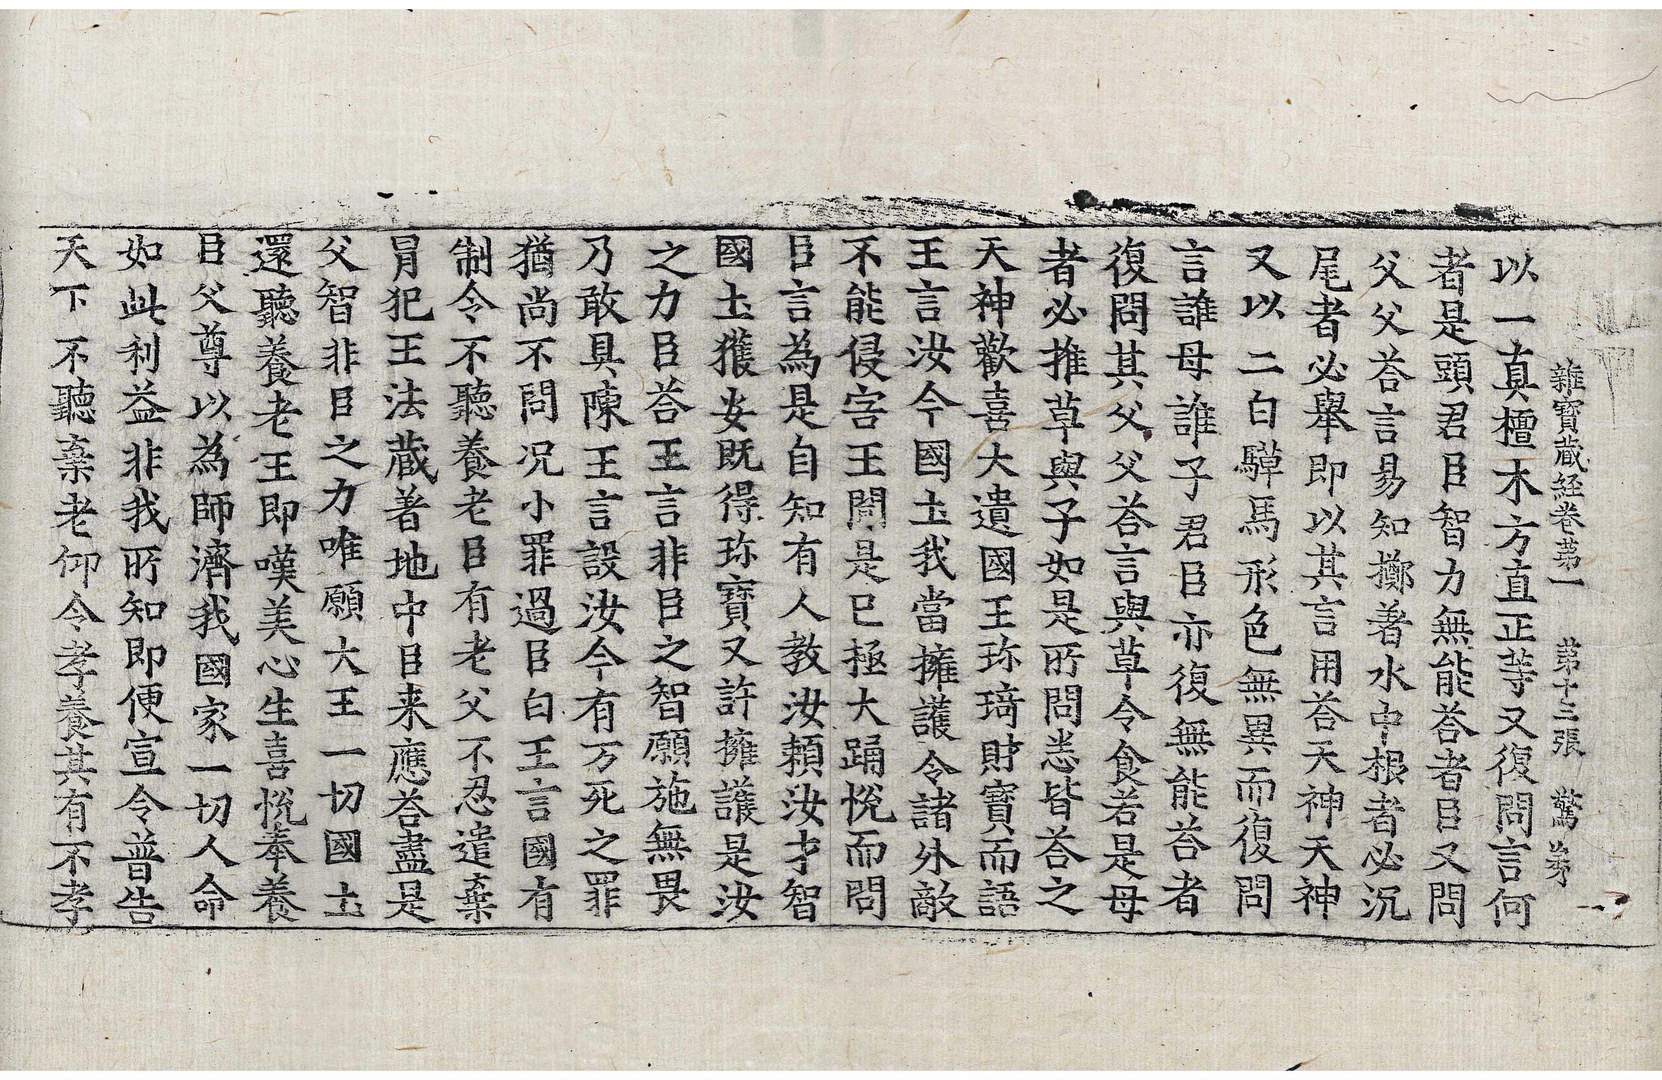 雜寶蔵経卷苐一 苐十三張 驚
以一真檀木方直正等又復問言何
者是頭君臣智力無能荅者臣又問
父父荅言易知擲著水中根者必沉
尾者必舉即以其言用荅天神天神
又以二白騲馬形色無異而復問
言誰母誰子君臣亦復無能荅者
復問其父父荅言與草令食若是母
者必推草與子如是所問悉皆荅之
天神歡喜大遺國王珎琦財寶而語
王言汝今國土我當擁護令諸外敵
不能侵害王聞是已極大踊悅而問
臣言為是自知有人教汝頼汝才智
國土獲安既得珎寶又許擁護是汝
之力臣荅王言非臣之智願施無畏
乃敢具陳王言設汝今有万死之罪
猶尚不問况小罪過臣白王言國有
制令不聽養老臣有老父不忍遣棄
冐犯王法蔵著地中臣来應荅盡是
父智非臣之力唯願大王一切國土
還聽養老王即嘆美心生喜悅奉養
臣父尊以為師濟我國家一切人命
如此利益非我所知即便宣令普告
天下不聽棄老仰令孝養其有不孝